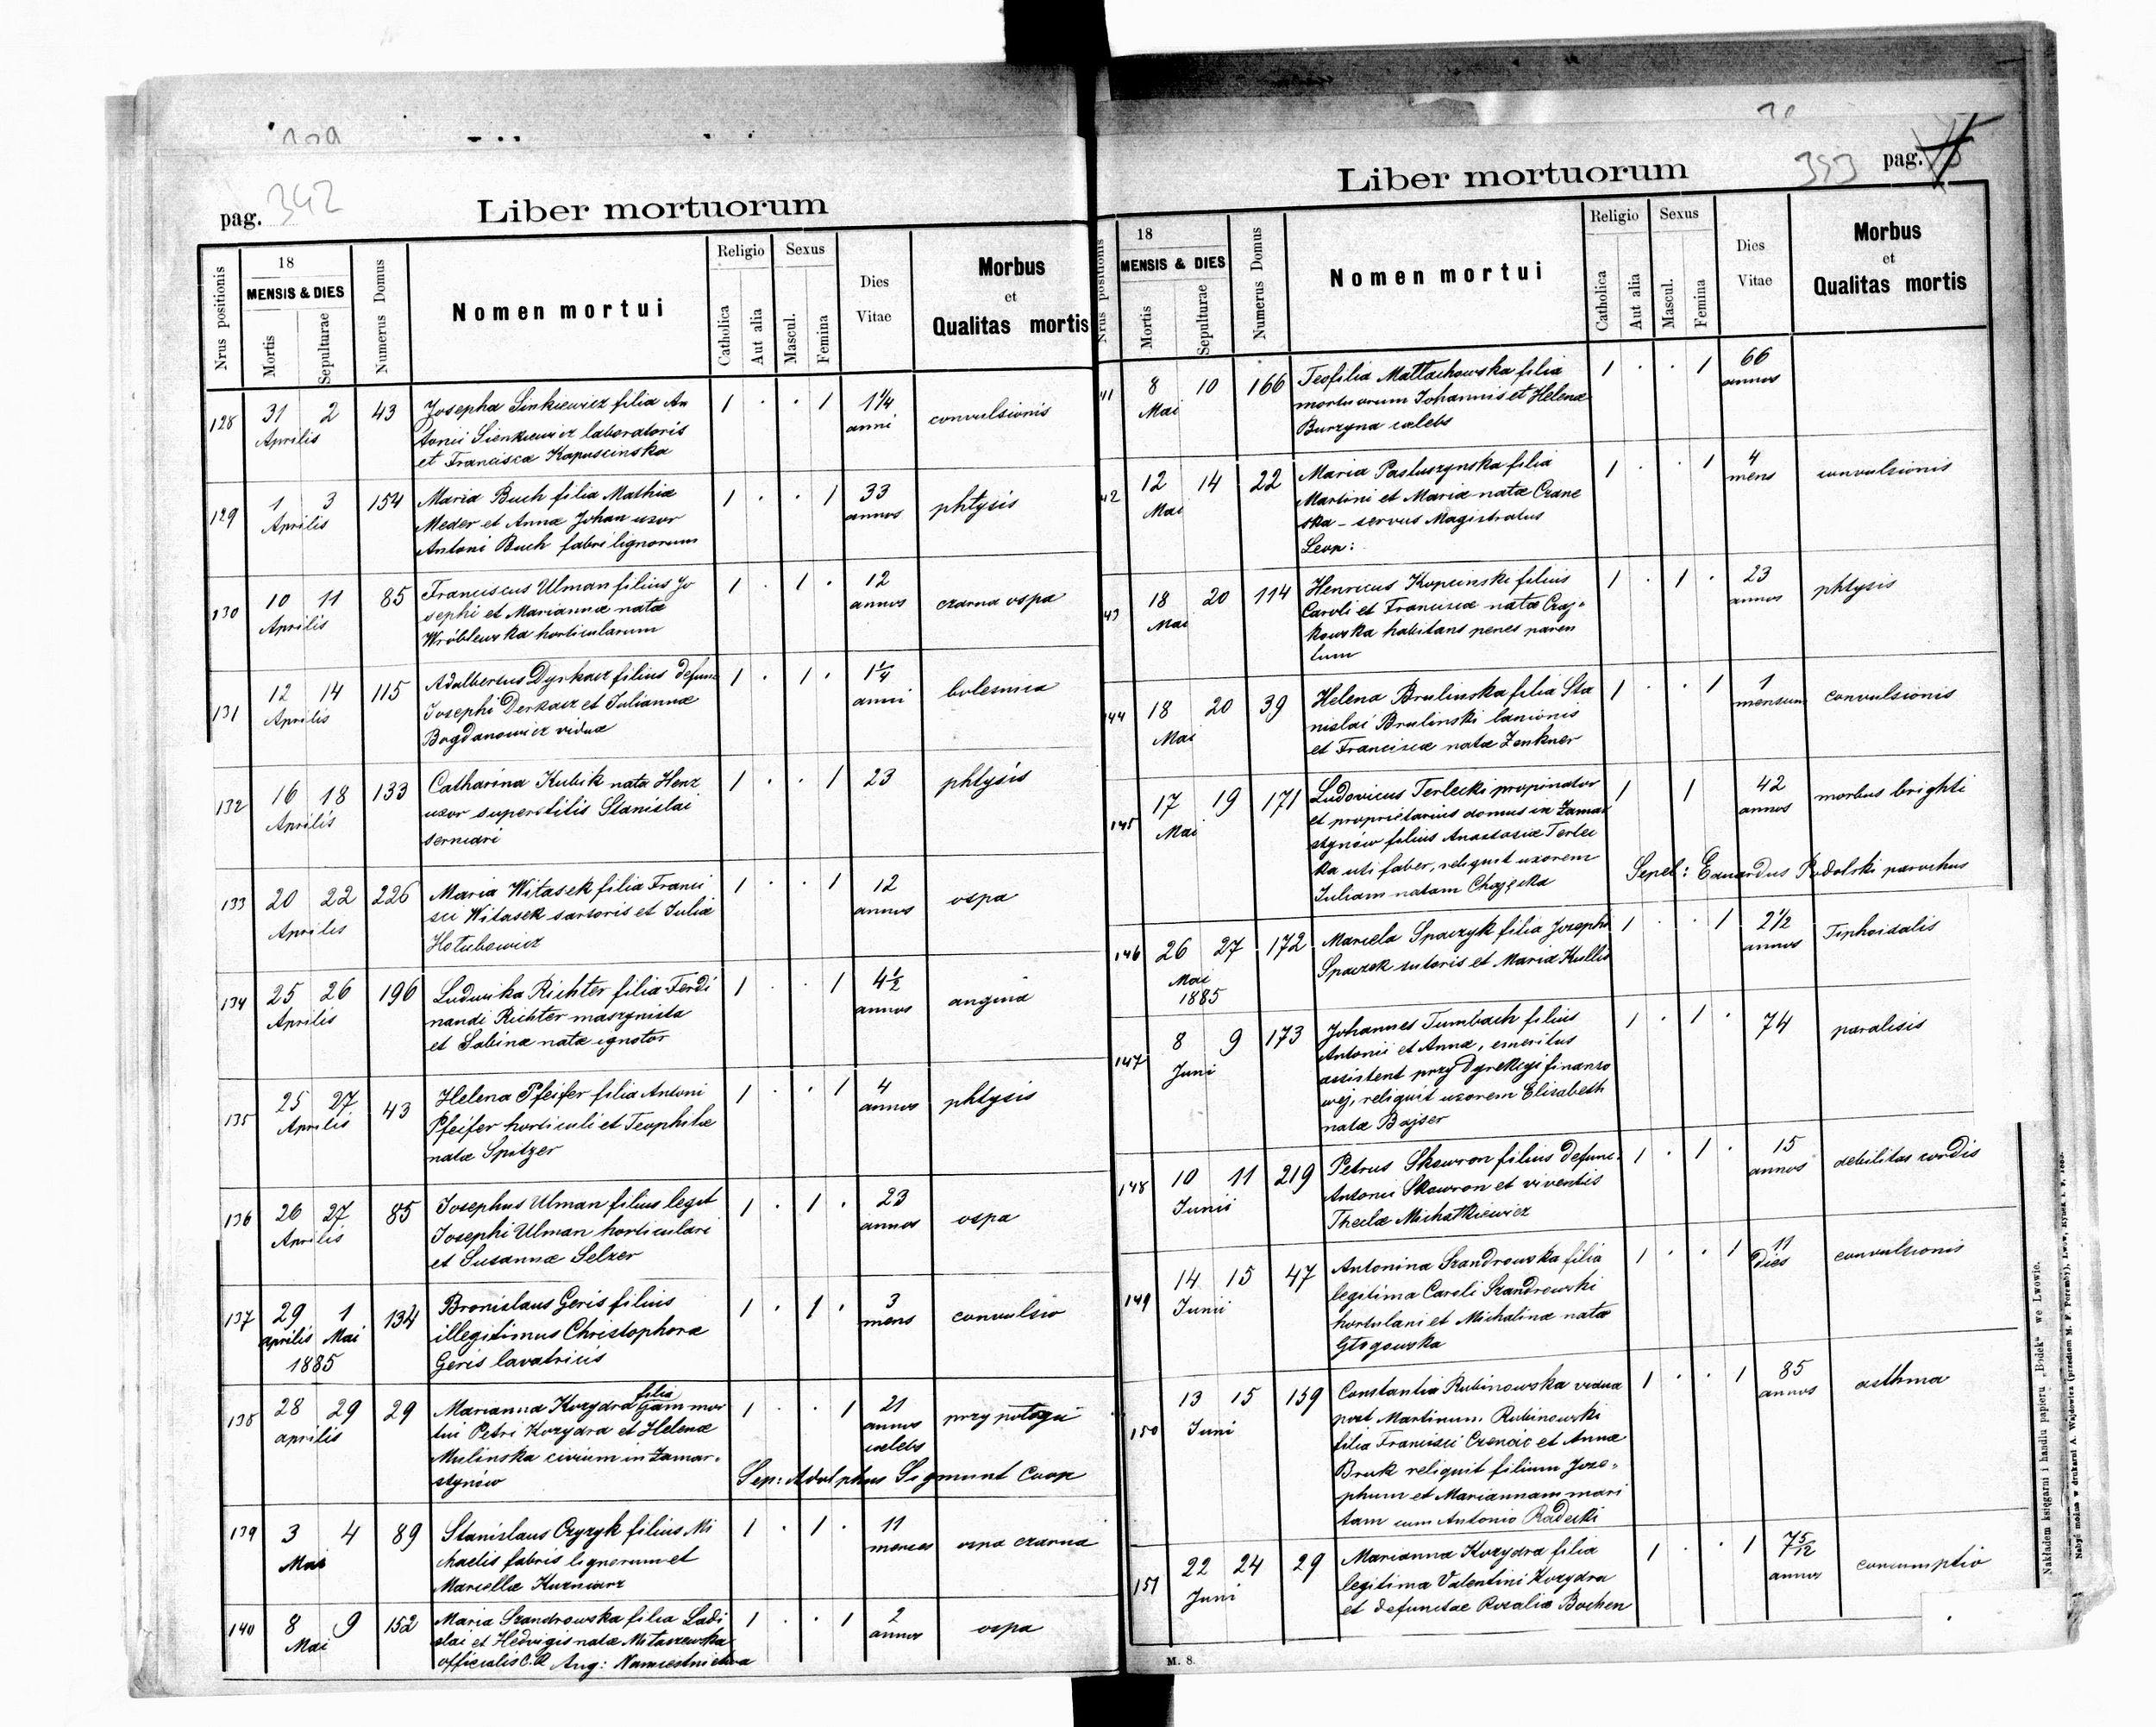 pag. 342
Liber mortuorum
Nrus positionis
18
MENSIS & DIES
Mortis
Sepulturae
Numerus Domus
Nomen mortui
Religio
Catholica
Aut alia
Sexus
Mascul.
Femina
Dies
Vitae
Morbus
et
Qualitas mortis
128 31 2 43 Josepha Sinkiewicz filia An 1 . . 1 1¼ convulsionis
Aprilis tonii Sienkiewicz laboratoris anni
et Francisca Kapuscinska
129 1 3 154 Maria Buch filia Mathiæ 1 . . 1 33 phtysis
Aprilis Meder et Annæ Johan uxor annos
Antoni Buch fabri lignorum
130 10 11 85 Franciscus Ulman filius Jo 1 . 1 . 12 czarna ospa
Aprilis sephi et Mariannæ natæ annos
Wróblewska horticularum
131 12 14 115 Adalbertus Dyrkacz filius defunc 1 . 1 . 1¼ bolesnica
Aprilis Josephi Derkacz et Juliannæ anni
Bogdanowicz viduæ
132 16 18 133 Catharina Kubik nata Henz 1 . . 1 23 phtysis
Aprilis uxor superstitis Stanislai
serviari
133 20 22 226 Maria Witasek filia Franci 1 . . 1 12 ospa
Aprilis sci Witasek sartoris et Juliæ annos
Hołubowicz
134 25 26 196 Ludwika Richter filia Ferdi 1 . . 1 4½ angina
Aprilis nandi Richter maszynista annos
et Sabinæ natæ ignotor
135 25 27 43 Helena Pfeifer filia Antoni 1 . . 1 4 phtysis
Aprilis Pfeifer horticuli et Teophilæ annos
natæ Spitzer
136 26 27 85 Josephus Ulman filius legit 1 . 1 . 23 ospa
Aprilis Josephi Ulman horticulari annos
et Susannæ Selzer
137 29 1 134 Bronislaus Geris filius 1 . 1 . 3 convulsio
aprilis Mai illegitimus Christophoræ mens
1885 Geris lavatricis
138 28 29 29 Marianna Kozydra filia mor 1 . . 1 21
aprilis tui Petri Kozydra et Helenæ annos
Mulinska civium in Zamar- celebs
stynów Sep: Adolphus Sigmunt Coop
139 3 4 89 Stanislaus Czyzyk filius Mi 1 . 1 . 11 ospa czarna
Mai chaelis fabris lignorum et menses
Mariellæ Kuzniarz
140 8 9 152 Maria Szandrowska filia Ladi 1 . . 1 2 ospa
Mai slai et Hedvigis natæ Mitaszewska annos
officialis C.R. Aug: Namiestnictwa
Liber mortuorum
353 pag.
Nrus positionis
18
MENSIS & DIES
Mortis
Sepulturae
Numerus Domus
Nomen mortui
Religio
Catholica
Aut alia
Sexus
Mascul.
Femina
Dies
Vitae
Morbus
et
Qualitas mortis
41 8 10 166 Teofilia Małłachowska filia 1 . . 1 66
Mai mortuorum Johannis et Helenæ annos
Burzyna celebs
42 12 14 22 Maria Pastuszynska filia 1 . . 1 4 convulsionis
Mai Martini et Mariæ natæ Czane mens
ska - servus Magistratus
Leop:
43 18 20 114 Henricus Kopcinski filius 1 . 1 . 23 phtysis
Mai Caroli et Franciscæ natæ Czaj- annos
kowska habitans penes paren
tum
144 18 20 39 Helena Brulinska filia Sta 1 . . 1 1 convulsionis
Mai nislai Brulinski lanionis mensum
et Franciscæ natæ Zenkner
145 17 19 171 Ludovicus Terlecki propinator 1 1 42 morbus brighti
Mai et proprietarius domus in Zamar annos
stynów filius Anastasiæ Terlec
ka uti faber, reliquit uxorem
Juliam natam Chajęcka Sepel: Eduardus Podolski parochus
146 26 27 172 Mariela Spaczyk filia Josephi 1 . . 1 2½ Tiphoidalis
Mai Spaczek sutoris et Mariæ Kullis annos
1885
147 8 9 173 Johannes Tumbach filius 1 . 1 . 74 paralisis
Juni Antonii et Annæ, emeritus
assistent przy Dyrekcyi finanso
wej, reliquit uxorem Elisabeth
natæ Bajser
148 10 11 219 Petrus Skowron filius defunc. 1 . 1 . 15 debilitas cordis
Junii Antonii Skowron et viventis annos
Theclæ Michałkiewicz
149 14 15 47 Antonina Szandrowska filia 1 . . 1 11 convulsionis
Junii legitima Caroli Szandrowski Dies
hortulani et Michalinæ natæ
Głogowska
150 13 15 159 Constantia Rubinowska vidua 1 . . 1 85 asthma
Juni post Martinum Rubinowski annos
filia Francisci Czencic et Annæ
Bruk reliquit filium Jose-
phum et Mariannam mari
tam cum Antonio Radecki
151 22 24 29 Marianna Kozydra filia 1 . . 1 7 5/12 consumptio
Juni legitima Valentini Kozydra annos
et defunctae Rozaliæ Bochen
M. 8.
Nakładem księgarni i handlu papieru „Bodek“ we Lwowie.